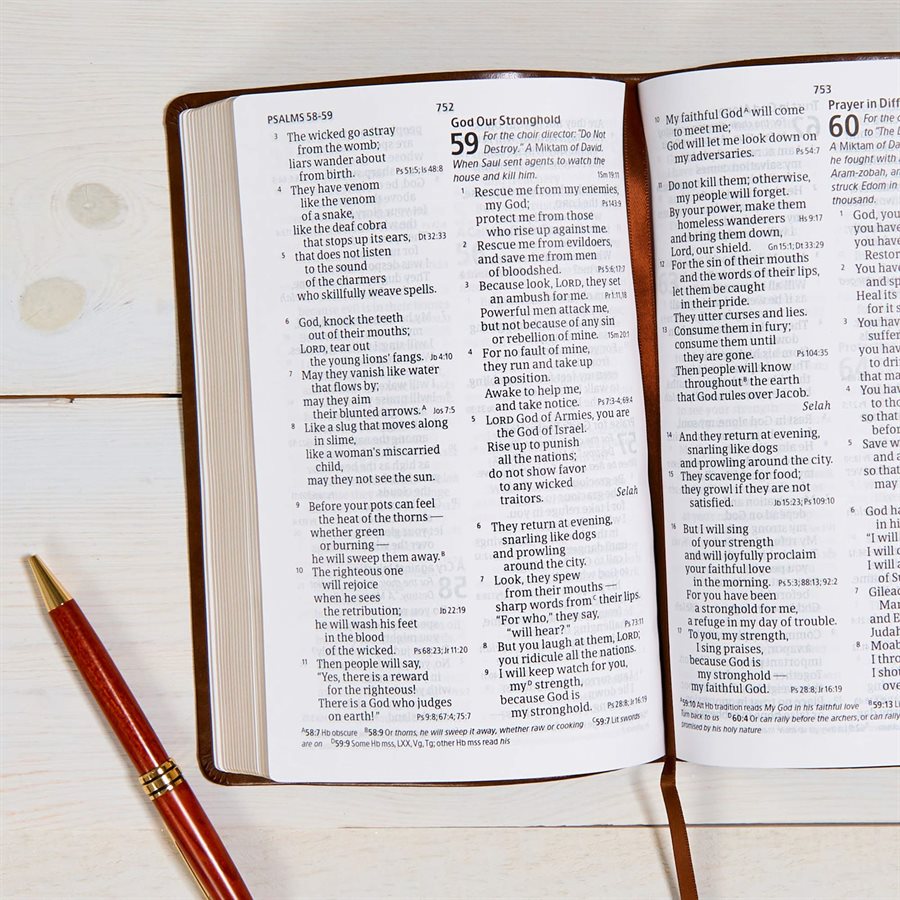 PSALMS 58-59
752
3 The wicked go astray
from the womb;
liars wander about
from birth. Ps 51:5; Is 48:8
4 They have venom
like the venom
of a snake,
like the deaf cobra
that stops up its ears, Dt 32:33
5 that does not listen
to the sound
of the charmers
who skillfully weave spells.
6 God, knock the teeth
out of their mouths;
LORD, tear out
the young lions' fangs. Jb 4:10
7 May they vanish like water
that flows by;
may they aim
their blunted arrows.A Jos 7:5
8 Like a slug that moves along
in slime,
like a woman's miscarried
child,
may they not see the sun.
9 Before your pots can feel
the heat of the thorns —
whether green
or burning —
he will sweep them away.B
10 The righteous one
will rejoice
when he sees
the retribution; Jb 22:19
he will wash his feet
in the blood
of the wicked. Ps 68:23; Jr 11:20
11 Then people will say,
"Yes, there is a reward
for the righteous!
There is a God who judges
on earth!" Ps 9:8; 67:4; 75:7
God Our Stronghold
59 For the choir director: "Do Not
Destroy." A Miktam of David.
When Saul sent agents to watch the
house and kill him. 1Sm 19:11
1 Rescue me from my enemies,
my God; Ps 143:9
protect me from those
who rise up against me.
2 Rescue me from evildoers,
and save me from men
of bloodshed. Ps 5:6; 17:7
3 Because look, LORD, they set
an ambush for me. Pr 1:11,18
Powerful men attack me,
but not because of any sin
or rebellion of mine. 1Sm 20:1
4 For no fault of mine,
they run and take up
a position.
Awake to help me,
and take notice. Ps 7:3-4; 69:4
5 LORD God of Armies, you are
the God of Israel.
Rise up to punish
all the nations;
do not show favor
to any wicked
traitors. Selah
6 They return at evening,
snarling like dogs
and prowling
around the city.
7 Look, they spew
from their mouths —
sharp words from C their lips.
"For who," they say,
"will hear?" Ps 73:11
8 But you laugh at them, LORD;
you ridicule all the nations.
9 I will keep watch for you,
my D strength,
because God is
my stronghold. Ps 28:8; Jr 16:19
A58:7 Hb obscure B58:9 Or thorns, he will sweep it away, whether raw or cooking C59:7 Lit swords
are on D59:9 Some Hb mss, LXX, Vg, Tg; other Hb mss read his
753
10 My faithful God A will come
to meet me;
God will let me look down on
my adversaries. Ps 54:7
11 Do not kill them; otherwise,
my people will forget.
By your power, make them
homeless wanderers Hs 9:17
and bring them down,
Lord, our shield. Gn 15:1; Dt 33:29
12 For the sin of their mouths
and the words of their lips,
let them be caught
in their pride.
They utter curses and lies.
13 Consume them in fury;
consume them until
they are gone. Ps 104:35
Then people will know
throughout B the earth
that God rules over Jacob.
Selah
14 And they return at evening,
snarling like dogs
and prowling around the city.
15 They scavenge for food;
they growl if they are not
satisfied. Jb 15:23; Ps 109:10
16 But I will sing
of your strength
and will joyfully proclaim
your faithful love
in the morning. Ps 5:3; 88:13; 92:2
For you have been
a stronghold for me,
a refuge in my day of trouble.
17 To you, my strength,
I sing praises,
because God is
my stronghold —
my faithful God. Ps 28:8; Jr 16:19
Prayer in Diff
60 For the c
to "The L
A Miktam of Da
he fought with
Aram-zobah, an
struck Edom in
thousand.
1 God, you
you have
you have
Restor
2 You have
and sp
Heal its
for it s
3 You hav
suffer
you hav
to drin
that ma
4 You hav
to tho
so that
befor
5 Save w
and a
so that
may
6 God ha
in hi
"I will
I will d
of Su
7 Gilead
Man
and E
Judah
8 Moab
I thro
I shou
over
A59:10 Alt Hb tradition reads My God in his faithful love B59:13 Li
Turn back to us D60:4 Or can rally before the archers, or can rally
promised by his holy nature